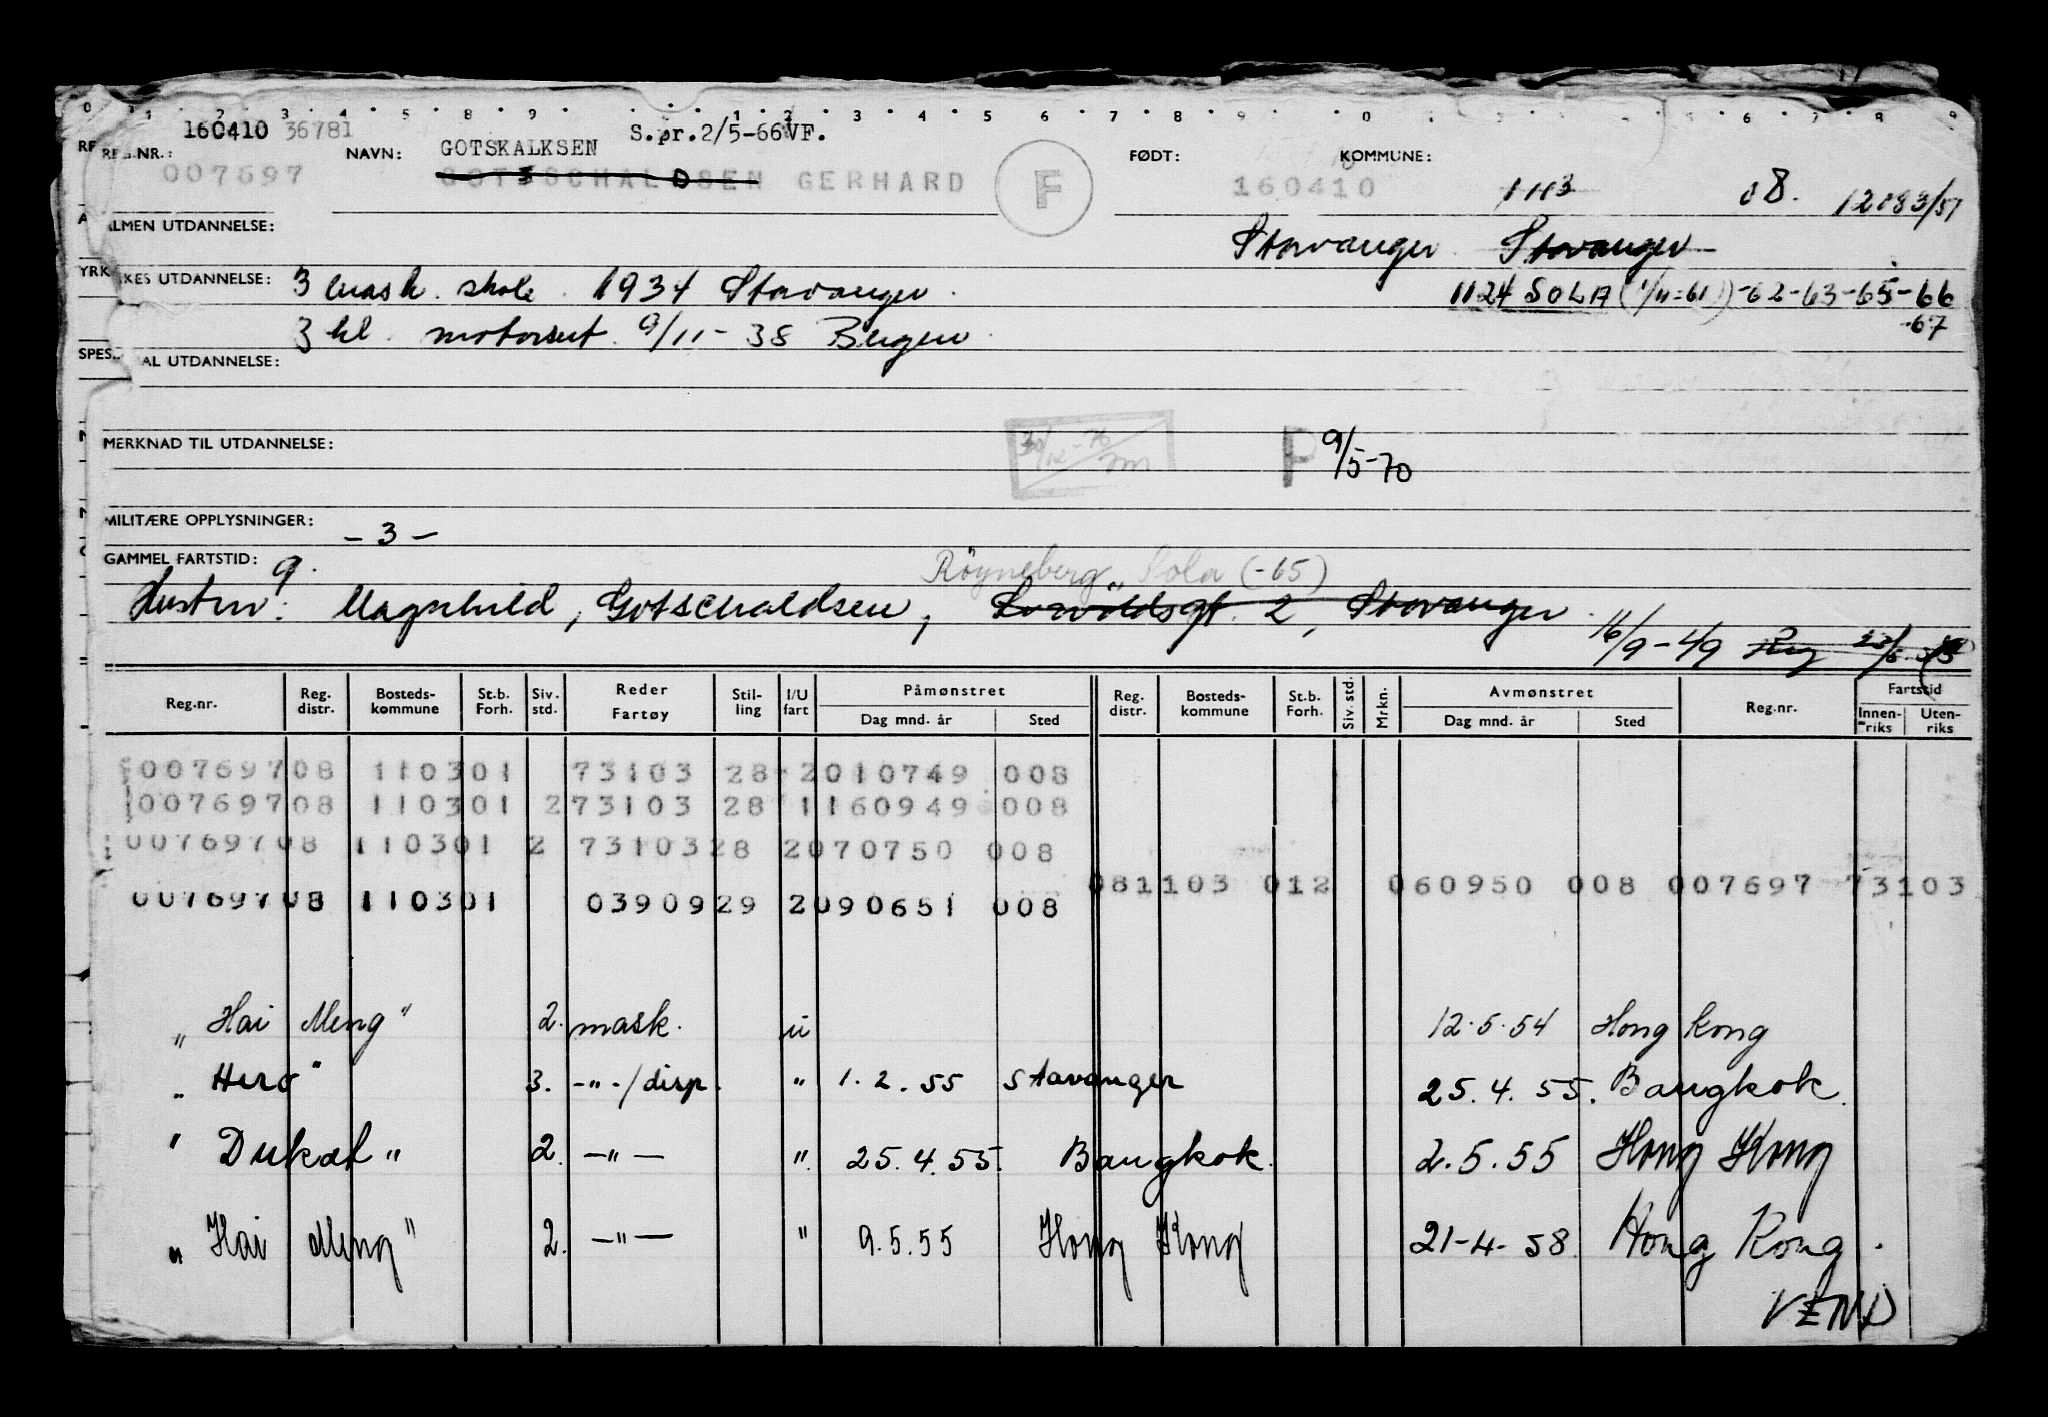 0 1 2 3 4 5 8 9 1 2 3 4 5 6 7 8 9 0 6 7 8 9
160410 36781 S.pr.2/5-66VF.
REG.NR.: NAVN: GOTSKALKSEN FØDT: KOMMUNE:
007697 GERHARD F 160410 1103 08. 12183/51
ALMEN UTDANNELSE: Stavanger Stavanger
YRKES UTDANNELSE: 3 mask. skole. 1934 Stavanger. 1124 SOLA (1/11-61) -62-63-65-66
3 kl. motorsert. 9/11-38 Bergen. -67
SPESIAL UTDANNELSE:
MERKNAD TIL UTDANNELSE: P 9/5-70
MILITÆRE OPPLYSNINGER: -3-
GAMMEL FARTSTID: 9. Röyneberg, Sola (-65)
Hustru: Magnhild, Gotschaldsen, 2, Stavanger.
16/9-49
Reg.nr. Reg. distr. Bosteds- kommune St.b. Forh. Siv. std. Reder Fartøy Stil- ling I/U fart Påmønstret Dag mnd. år Sted Reg. distr. Bosteds- kommune St.b. Forh. Siv. std. Mrkn. Avmønstret Dag mnd. år Sted Reg.nr. Fartstid Innen- riks Uten- riks
00769708 110301 73103 28 2010749 008
00769708 110301 273103 28 1160949 008
00769708 110301 2 7310328 2070750 008
081103 012 060950 008 007697 73103
00769708 110301 0390929 2090651 008
„Hai Meng" 2. mask. u 12.5.54 Hong Kong
„Hero" 3. -"-/disp. " 1.2.55 Stavanger 25.4.55. Bangkok.
"Dukat" 2. -"- " 25.4.55. Bangkok. 2.5.55 Hong Kong
„Hai Meng" 2. -"- " 9.5.55 Hong Kong 21-4-58 Hong Kong.
VEND